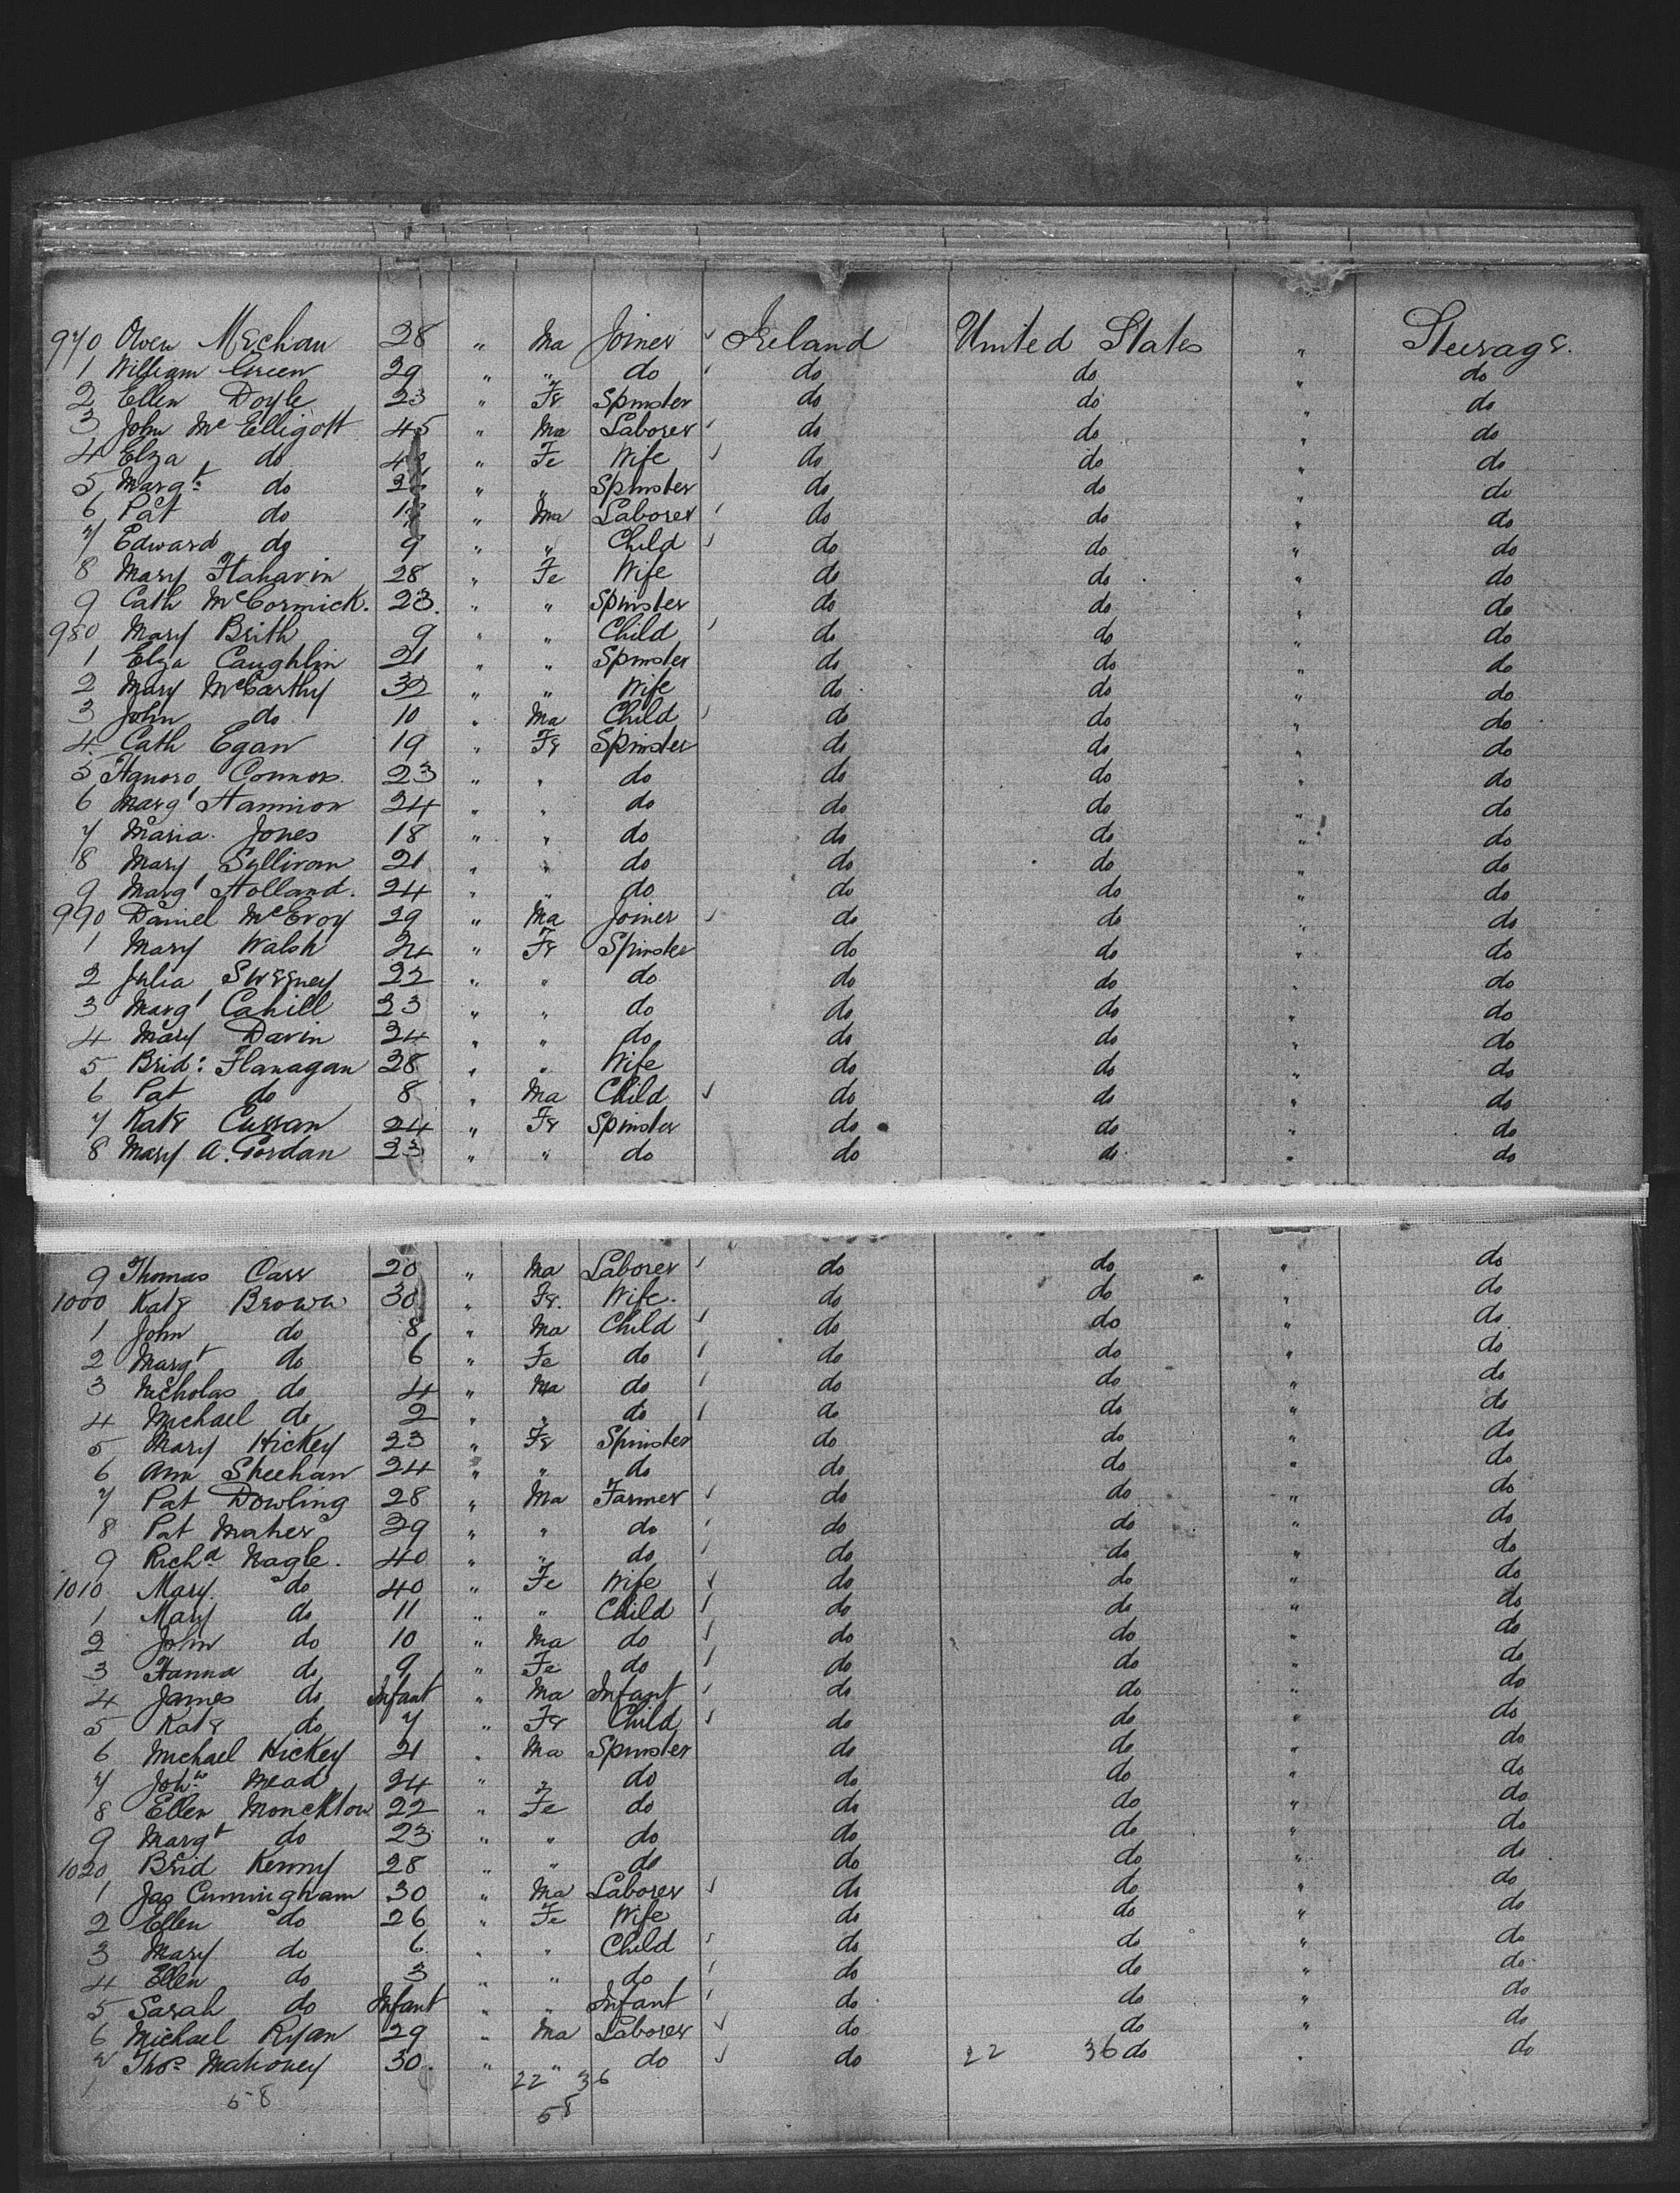 970 Owen Mechan 28 " Ma Joiner ✓ Ireland United States " Steerage.
1 William Green 29 " " do ✓ do do " do
2 Ellen Doyle 23 " Fe Spinster do do " do
3 John McElligott 45 " Ma Laborer ✓ do do " do
4 Elza do " Fe Wife ✓ do do " do
5 Margt do " " Spinster do do " do
6 Pat do " Ma Laborer ✓ do do " do
7 Edward do 9 " " Child ✓ do do " do
8 Mary Flahavin 28 " Fe Wife do do " do
9 Cath McCormick. 23. " " Spinster do do " do
980 Mary Brith 9 " " Child ✓ do do " do
1 Elza Caughlin 21 " " Spinster do do " do
2 Mary McCarthy 32 " " Wife do do " do
3 John do 10 " Ma Child ✓ do do " do
4 Cath Egan 19 " Fe Spinster do do " do
5 Hanoro Connors 23 " " do do do " do
6 Margt Hannion 24 " " do do do " do
7 Maria Jones 18 " " do do do " do
8 Mary Sullivan 21 " " do do do " do
9 Margt Holland. 24 " " do do do " do
990 Daniel McEvoy 29 " Ma Joiner ✓ do do " do
1 Mary Walsh 24 " Fe Spinster do do " do
2 Julia Sweeney 22 " " do do do " do
3 Margt Cahill 23 " " do do do " do
4 Mary Davin 24 " " do do do " do
5 Brid: Flanagan 28 " " Wife do do " do
6 Pat do 8 " Ma Child ✓ do do " do
7 Kate Curran 24 " Fe Spinster do do " do
8 Mary A. Gordan 23 " " do do do " do
9 Thomas Carr 20 " Ma Laborer ✓ do do " do
1000 Kate Brown 30 " Fe. Wife. do do " do
1 John do 8 " Ma Child ✓ do do " do
2 Margt do 6 " Fe do ✓ do do " do
3 Nicholas do 4 " Ma do ✓ do do " do
4 Michael do 2 " " do ✓ do do " do
5 Mary Hickey 23 " Fe Spinster do do " do
6 Ann Sheehan 24 " " do do do " do
7 Pat Dowling 28 " Ma Farmer ✓ do do " do
8 Pat Maher 39 " " do ✓ do do " do
9 Richd Nagle. 40 " " do ✓ do do " do
1010 Mary do 40 " Fe Wife ✓ do do " do
1 Mary do 11 " " Child ✓ do do " do
2 John do 10 " Ma do ✓ do do " do
3 Hanna do 9 " Fe do ✓ do do " do
4 James do Infant " Ma Infant ✓ do do " do
5 Kate do 7 " Fe Child ✓ do do " do
6 Michael Hickey 21 " Ma Spinster do do " do
7 Mead 24 " " do do do " do
8 Ellen Monckton 22 " Fe do do do " do
9 Margt do 23 " " do do do " do
1020 Brid Kenny 28 " " do do do " do
1 Jas Cunningham 30 " Ma Laborer ✓ do do " do
2 Ellen do 26 " Fe Wife do do " do
3 Mary do 6 " " Child ✓ do do " do
4 Ellen do 3 " " do ✓ do do " do
5 Sarah do Infant " " Infant ✓ do do " do
6 Michael Ryan 29 " Ma Laborer ✓ do do " do
7 Thos Mahoney 30. " " do ✓ do 22 36 do " do
22 36
58 58